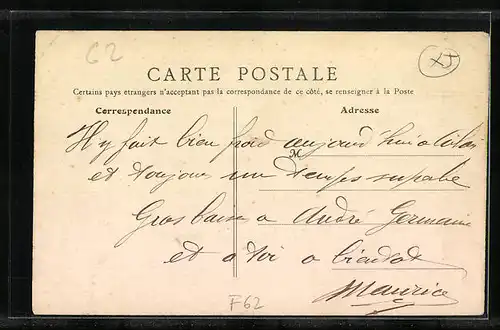 62
CARTE POSTALE
Certains pays étrangers n'acceptant pas la correspondance de ce côté, se renseigner à la Poste
Correspondance
Adresse
Il y fait bien froid aujourd'hui
M
et toujours un temps superbe
Gros baiser a André Germaine
et a toi a bientot
Maurice
F62